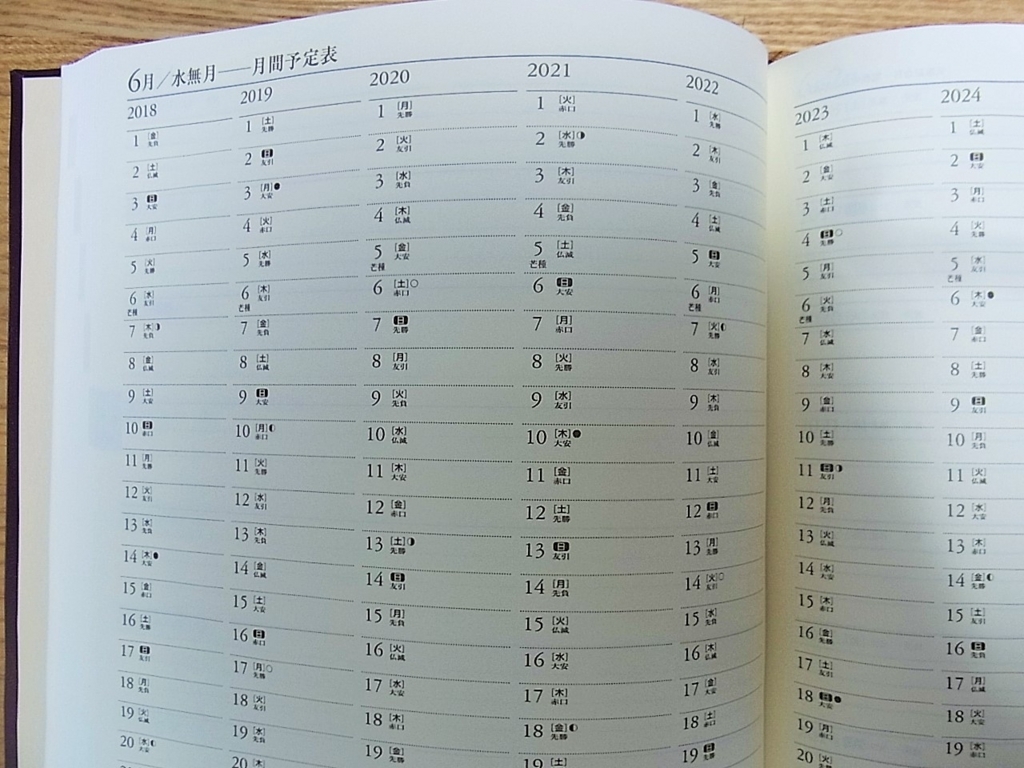 6月／水無月——月間予定表
2018
1 [金] 先負
2 [土] 仏滅
3 [日] 大安
4 [月] 赤口
5 [火] 先勝
6 [水] 友引 芒種
7 [木] 先負
8 [金] 仏滅
9 [土] 大安
10 [日] 赤口
11 [月] 先勝
12 [火] 友引
13 [水] 先負
14 [木] 大安
15 [金] 赤口
16 [土] 先勝
17 [日] 友引
18 [月] 先負
19 [火] 仏滅
20 [水] 大安
2019
1 [土] 先勝
2 [日] 友引
3 [月] 大安
4 [火] 赤口
5 [水] 先勝
6 [木] 友引 芒種
7 [金] 先負
8 [土] 仏滅
9 [日] 大安
10 [月] 赤口
11 [火] 先勝
12 [水] 友引
13 [木] 先負
14 [金] 仏滅
15 [土] 大安
16 [日] 赤口
17 [月] 先勝
18 [火] 友引
19 [水] 先負
20 [木]
2020
1 [月] 先勝
2 [火] 友引
3 [水] 先負
4 [木] 仏滅
5 [金] 大安 芒種
6 [土] 赤口
7 [日] 先勝
8 [月] 友引
9 [火] 先負
10 [水] 仏滅
11 [木] 大安
12 [金] 赤口
13 [土] 先勝
14 [日] 友引
15 [月] 先負
16 [火] 仏滅
17 [水] 大安
18 [木] 赤口
19 [金] 先勝
2021
1 [火] 赤口
2 [水] 先勝
3 [木] 友引
4 [金] 先負
5 [土] 仏滅 芒種
6 [日] 大安
7 [月] 赤口
8 [火] 先勝
9 [水] 友引
10 [木] 大安
11 [金] 赤口
12 [土] 先勝
13 [日] 友引
14 [月] 先負
15 [火] 仏滅
16 [水] 大安
17 [木] 赤口
18 [金] 先勝
19 [土]
2022
1 [水] 先勝
2 [木] 友引
3 [金] 先負
4 [土] 仏滅
5 [日] 大安
6 [月] 赤口 芒種
7 [火] 先勝
8 [水] 友引
9 [木] 先負
10 [金] 仏滅
11 [土] 大安
12 [日] 赤口
13 [月] 先勝
14 [火] 友引
15 [水] 先負
16 [木] 仏滅
17 [金] 大安
18 [土] 赤口
19 [日] 先勝
2023
1 [木] 仏滅
2 [金] 大安
3 [土] 赤口
4 [日] 先勝
5 [月] 友引
6 [火] 先負 芒種
7 [水] 仏滅
8 [木] 大安
9 [金] 赤口
10 [土] 先勝
11 [日] 友引
12 [月] 先負
13 [火] 仏滅
14 [水] 大安
15 [木] 赤口
16 [金] 先勝
17 [土] 友引
18 [日] 大安
19 [月] 赤口
20 [火] 先勝
2024
1 [土] 仏滅
2 [日] 大安
3 [月] 赤口
4 [火] 先勝
5 [水] 友引 芒種
6 [木] 大安
7 [金] 赤口
8 [土] 先勝
9 [日] 友引
10 [月] 先負
11 [火] 仏滅
12 [水] 大安
13 [木] 赤口
14 [金] 先勝
15 [土] 友引
16 [日] 先負
17 [月] 仏滅
18 [火] 大安
19 [水] 赤口